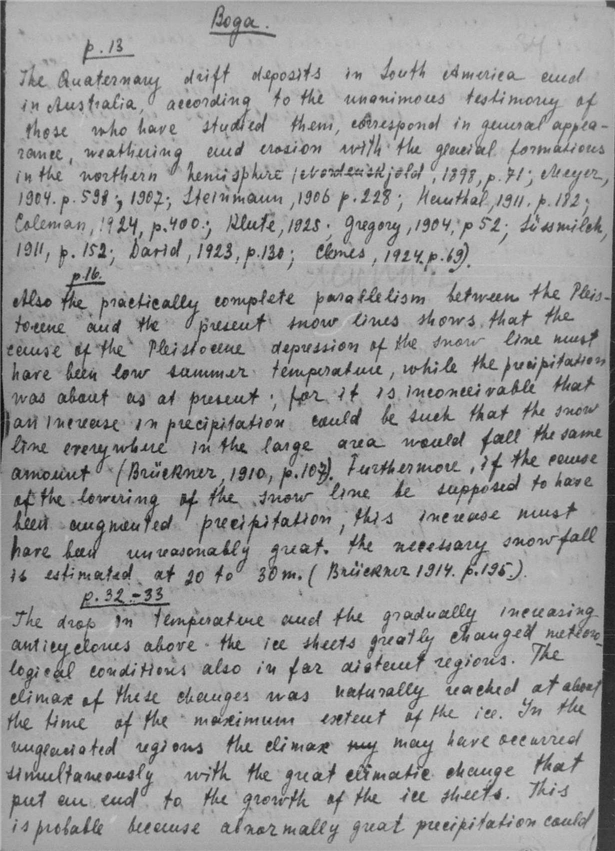 Boga.
p. 13
The Quaternary drift deposits in South America and
in Australia according to the unanimous testimony of
those who have studied them, correspond in general appea-
rance, weathering and erosion with the glacial formations
in the northern hemisphere (Nordenskjöld, 1898, p. 71; Meyer,
1904. p. 598; 1907; Steinmann, 1906 p. 228; Hauthal, 1911. p. 182;
Coleman, 1924, p. 400; Klute, 1925. Gregory, 1904, p 52; Süssmilch,
1911, p. 152; David, 1923, p. 130; 1924, p. 69).
p. 16.
Also the practically complete parallelism between the Pleis-
tocene and the present snow lines shows that the
cause of the Pleistocene depression of the snow line must
have been low summer temperature, while the precipitation
was about as at present; for it is inconceivable that
an increase in precipitation could be such that the snow
line everywhere in the large area would fall the same
amount (Brückner, 1910, p. 107). Furthermore, if the cause
of the lowering of the snow line be supposed to have
been augmented precipitation, this increase must
have been unreasonably great. the necessary snowfall
is estimated at 20 to 30 m. (Brückner 1914. p. 195).
p. 32-33
The drop in temperature and the gradually increasing
anticyclones above the ice sheets greatly changed meteoro-
logical conditions also in far distent regions. The
climax of these changes was naturally reached at about
the time of the maximum extent of the ice. In the
unglaciated regions the climax may have occurred
simultaneously with the great climatic change that
put an end to the growth of the ice sheets. This
is probable because abnormally great precipitation could